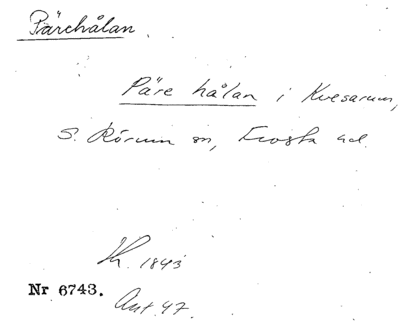 Pärehålan.
Päre hålan i Kvesarum,
S. Rörum sn, Frosta hd.
1843
Nr 6743.
Ant. 47.